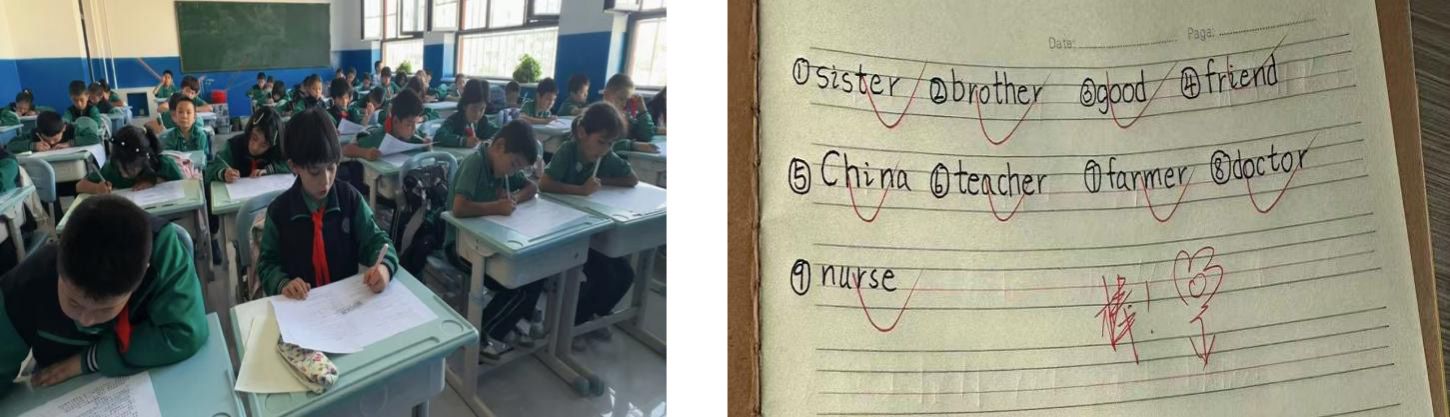 Date: Page:
①sister ②brother ③good ④friend
⑤China ⑥teacher ⑦farmer ⑧doctor
⑨nurse
棒!